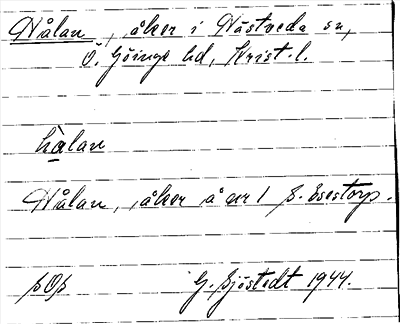 Hålan, åker i Hästveda sn,
Ö. Göinge hd, Krist. l.
hålan
Hålan, åker å nr 1 S.
G. Sjöstedt 1944.